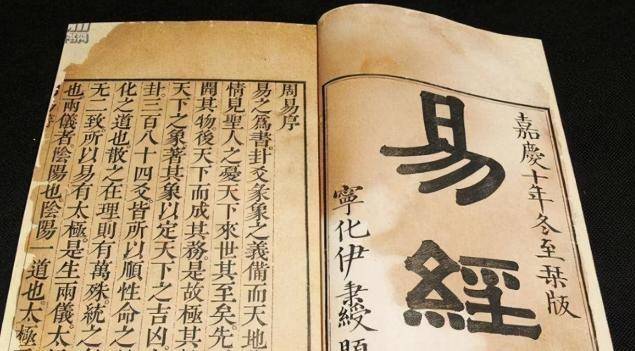 嘉慶十年冬至栞版
易經
寧化伊秉綬題
周易序
易之爲書卦爻彖象之義備而天地
情見聖人之憂天下來世其至矣先
開其物後天下而成其務是故極其
天下之象著其象以定天下之吉凶
卦三百八十四爻皆所以順性命之
化之道也散之在理則有萬殊統之
无二致所以易有太極是生兩儀太
也兩儀者陰陽也陰陽一道也太